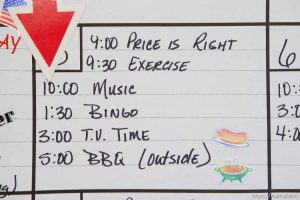 ay
9:00 PRICE IS RIGHT
9:30 EXERCISE
10:00 MUSIC
1:30 BINGO
3:00 T.V. TIME
5:00 BBQ (OUTSIDE)
6